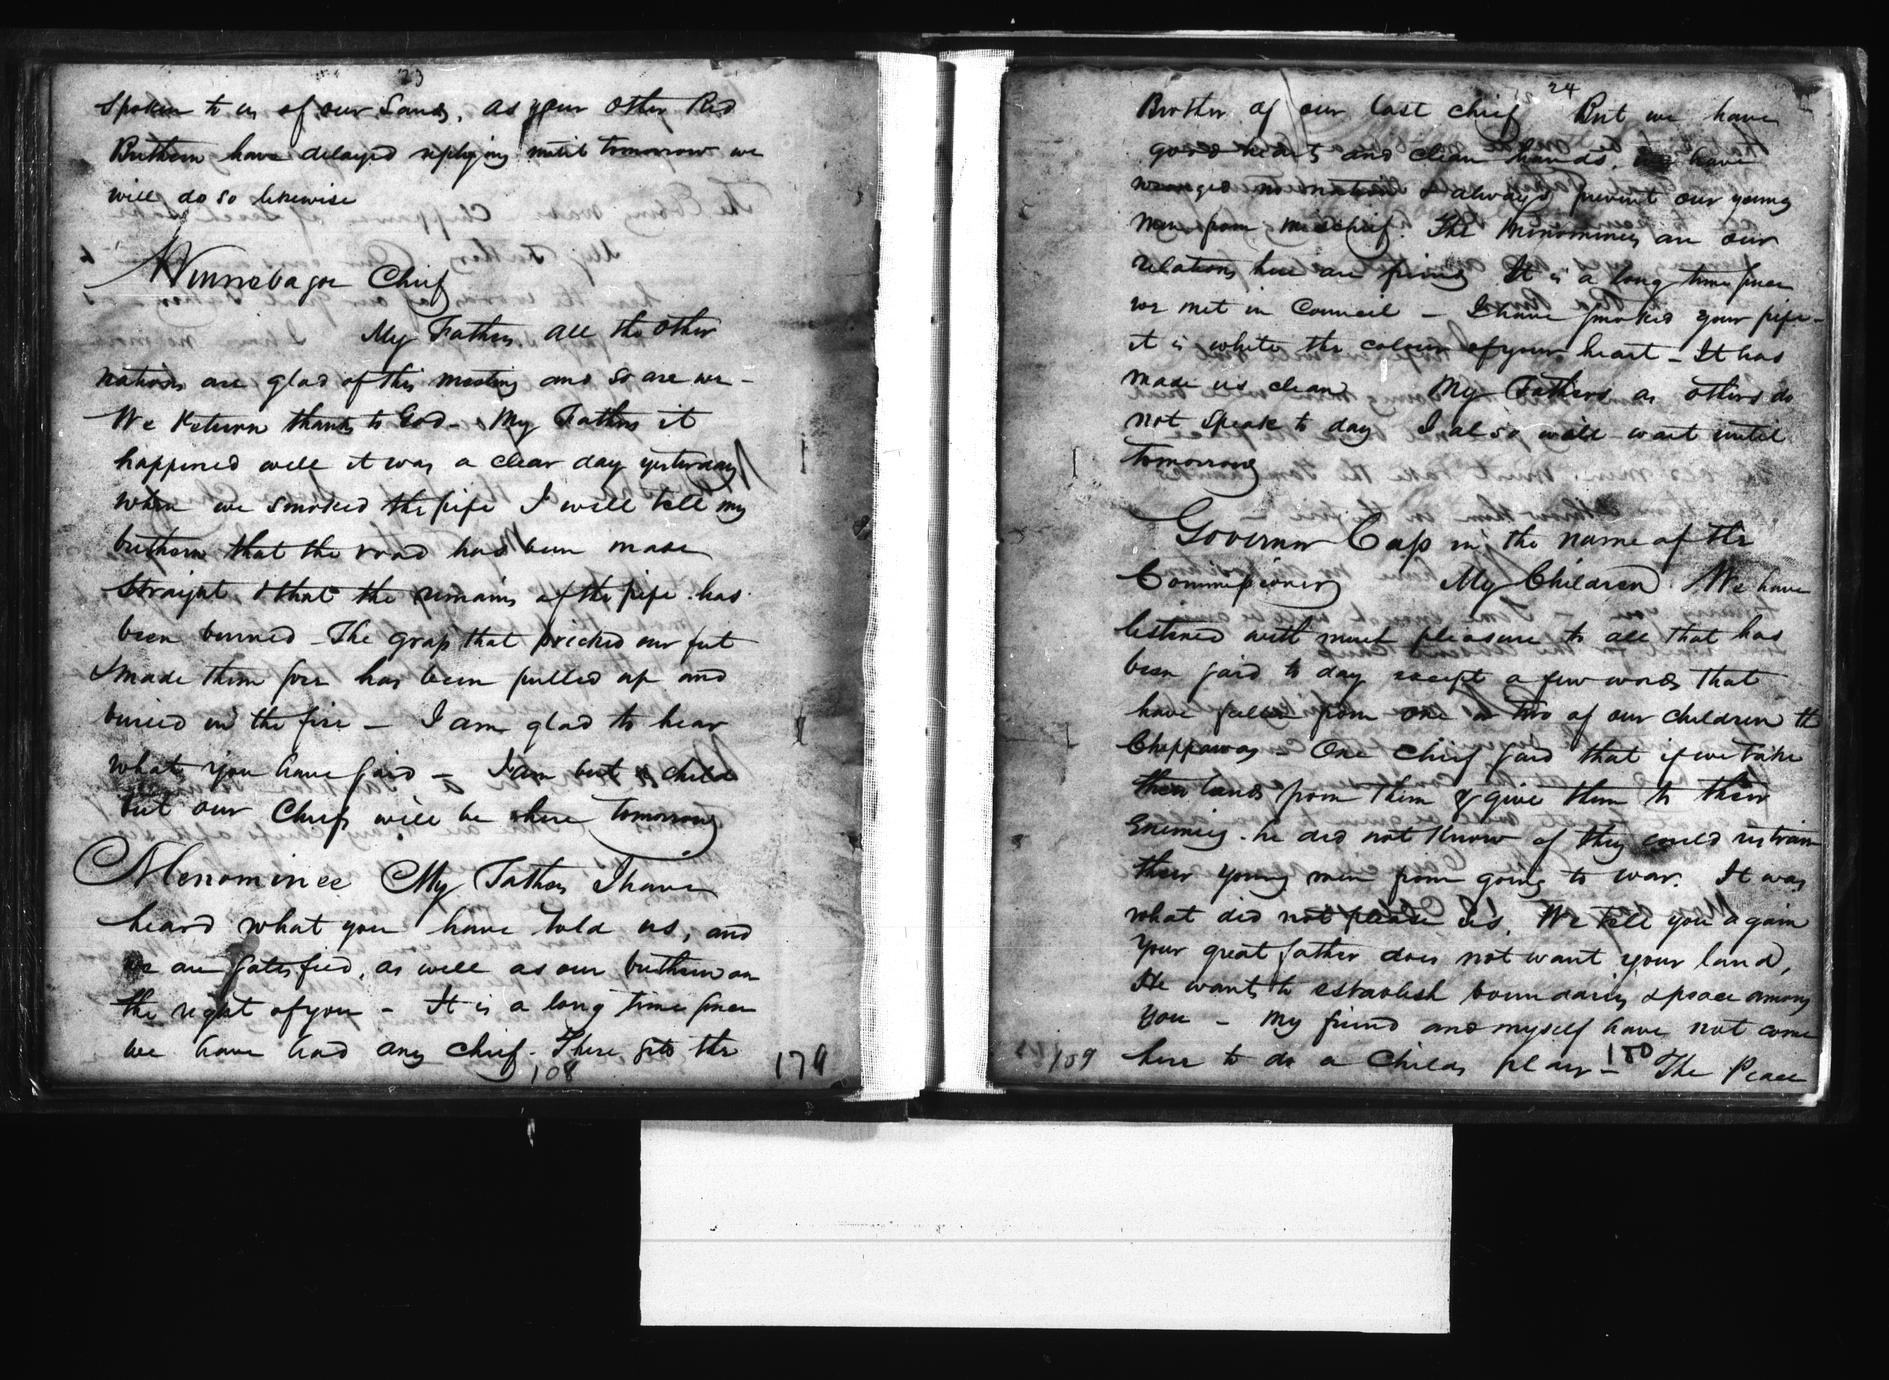 23
Spoken to us of our Lands, as your other Red
Brethern have delayed replying until tomorrow we
will do so likewise
Winnebagoe Chief
My Fathers all the other
nations are glad of this meeting and so are we -
We Return thanks to God - My Fathers it
happened well it was a clear day yesterday
when we smoked the pipe I will tell my
brethern that the road has been made
Straight, & that the remains of the pipe has
been burned - The grass that pricked our feet
& made them sore has been pulled up and
buried in the fire - I am glad to hear
what you have said - I am but a child
but our Chiefs will be here tomorrow
Menominee My Fathers I have
heard what you have told us, and
we are satisfied, as well as our brethern on
the right of you - It is a long time since
we have had any chief - There sits the
108
179
24
Brother of our last chief But we have
good hearts and clean hands. We have
wronged no nation & always prevent our young
men from mischief. The Menominies are our
relations here are friends It is a long time since
we met in Council - I have smoked your pipe -
it is white the colour of your heart - It has
made us clean My Fathers as others do
not speak to day I also will wait until
tomorrow
Governor Cass in the name of the
Commissioners My Children We have
listened with much pleasure to all that has
been said to day except a few words that
have fallen from one or two of our children the
Chippawas - One chief said that if we take
their lands from them & give them to their
Enemies - he did not know if they could restrain
their young men from going to war. It was
what did not please us. We tell you again
Your great father does not want your land,
He wants to establish boundaries & peace among
You - My friend and myself have not come
here to do a Childs play - The Peace
109
180